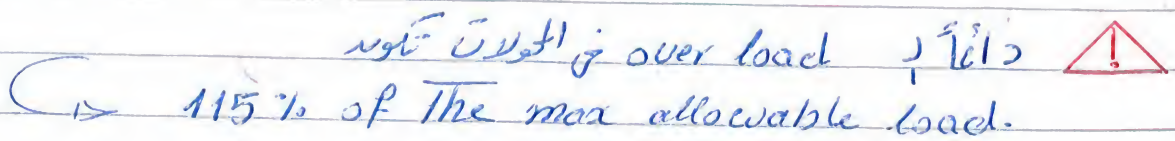 دائماً الـ over load في المحولات تكون
115% of The max allowable load.